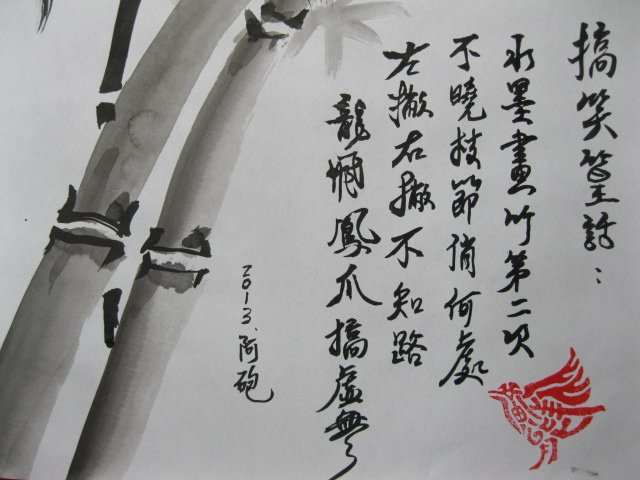 搞笑篁話：
水墨畫竹第二次
不曉枝節俏何處
左撇右撇不知路
龍飛鳳爪搞虛無
2013.阿砲